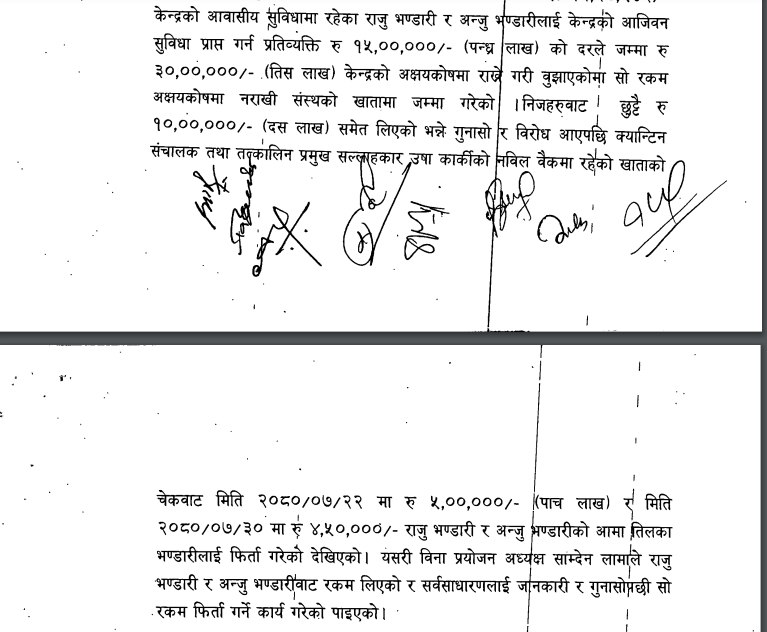 केन्द्रको आवासीय सुविधामा रहेका राजु भण्डारी र अन्जु भण्डारीलाई केन्द्रको आजिवन
सुविधा प्राप्त गर्न प्रतिव्यक्ति रु १५,००,०००/- (पन्ध्र लाख) को दरले जम्मा रु
३०,००,०००/- (तिस लाख) केन्द्रको अक्षयकोषमा राख्ने गरी वुझाएकोमा सो रकम
अक्षयकोषमा नराखी संस्थको खातामा जम्मा गरेको । निजहरुवाट छुट्टै रु
१०,००,०००/- (दस लाख) समेत लिएको भन्ने गुनासो र विरोध आएपछि क्यान्टिन
संचालक तथा तत्कालिन प्रमुख सल्लाहकार उषा कार्कीको नविल वैकमा रहेको खाताको
चेकवाट मिति २०८०/०७/२२ मा रु ५,००,०००/- (पाच लाख) र मिति
२०८०/०७/३० मा रु ४,५०,०००/- राजु भण्डारी र अन्जु भण्डारीको आमा तिलका
भण्डारीलाई फिर्ता गरेको देखिएको। यसरी विना प्रयोजन अध्यक्ष साम्देन लामाले राजु
भण्डारी र अन्जु भण्डारीवाट रकम लिएको र सर्वसाधारणलाई जानकारी र गुनासोपछी सो
रकम फिर्ता गर्ने कार्य गरेको पाइएको।